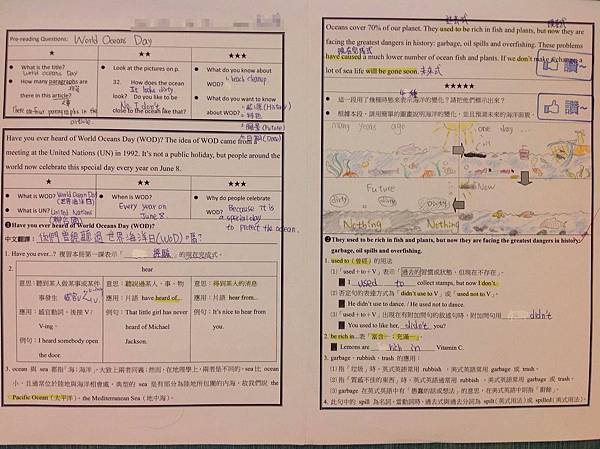 Pre-reading Questions: World Oceans Day
★
★★
★★★
What is the title?
World Oceans Day
How many paragraphs are there in this article?
There are four paragraphs in the article.
Look at the pictures on p. 32. How does the ocean look? Do you like to be close to the ocean like that?
It looks dirty
No I don't
What do you know about WOD?
beach cleanup
What do you want to know about WOD?
Have you ever heard of World Oceans Day (WOD)? The idea of WOD came from a
meeting at the United Nations (UN) in 1992. It's not a public holiday, but people around the
world now celebrate this special day every year on June 8.
★
★★
★★★
What is WOD? World Oceans Day
(世界海洋日)
What is UN? United Nations
(聯合國)
When is WOD?
Every year on
June 8.
Why do people celebrate WOD?
Because it is
a special day
to protect the ocean.
❶Have you ever heard of World Oceans Day (WOD)?
中文翻譯:你們曾經聽過世界海洋日(WOD)嗎?
1. Have you ever...? 複習本冊第一課表示「經驗」的現在完成式。
2.
hear
意思:聽到某人做某事或某件事發生
應用:感官動詞,後接 V / V-ing。
例句:I heard somebody open the door.
意思:聽說過某人、事、物
應用:片語 have heard of...
例句:That little girl has never heard of Michael Jackson.
意思:得到某人的消息
應用:片語 hear from...
例句:It's nice to hear from you.
3. ocean 與 sea 都指「海;海洋」,大致上兩者同義;然而,在地理學上,兩者是不同的,sea 比 ocean
小,且通常位於陸地與海洋相會處,典型的 sea 是有部分為陸地所包圍的內海,故我們說 the
Pacific Ocean(太平洋)、the Mediterranean Sea(地中海)。
過去式
現在式
Oceans cover 70% of our planet. They used to be rich in fish and plants, but now they are
facing the greatest dangers in history: garbage, oil spills and overfishing. These problems
現在完成式
have caused a much lower number of ocean fish and plants. If we don't make a change, a
lot of sea life will be gone soon. 未來式
讀~
★★★★★
4 種
這一段用了幾種時態來表示海洋的變化?請把他們標示出來?
根據本段,請用簡單的圖畫說明海洋的變化,並且預測未來的海洋面貌。
讀~
many years ago
one day
Future
Now
dirty
dirty
Nothing
Nothing
❷They used to be rich in fish and plants, but now they are facing the greatest dangers in history:
garbage, oil spills and overfishing.
1. used to(曾經)的用法
(1)「used + to + V」表示「過去的習慣或狀態,但現在不存在」。
I used to collect stamps, but now I don't.
(2) 否定句的表達方式為「didn't use to V」或「used not to V」。
He didn't use to dance. / He used not to dance.
(3)「used + to + V」出現在有附加問句的敘述時,附加問句用 didn't
You used to like her, didn't you?
2. be rich in...表「富含…;充滿…」
Lemons are rich in Vitamin C.
3. garbage、rubbish、trash 的應用:
(1) 指「垃圾」時,英式英語常用 rubbish,美式英語常用 garbage 或 trash。
(2) 指「質感不佳的東西」時,英式英語通常用 rubbish,美式英語常用 garbage 或 trash。
(3) garbage 在英式英語中有「愚蠢的話或想法」的意思,在美式英語中則指「廚餘」。
4. 此句中的 spill 為名詞,當動詞時,過去式與過去分詞為 spilt (英式用法) 或 spilled (美式用法)。